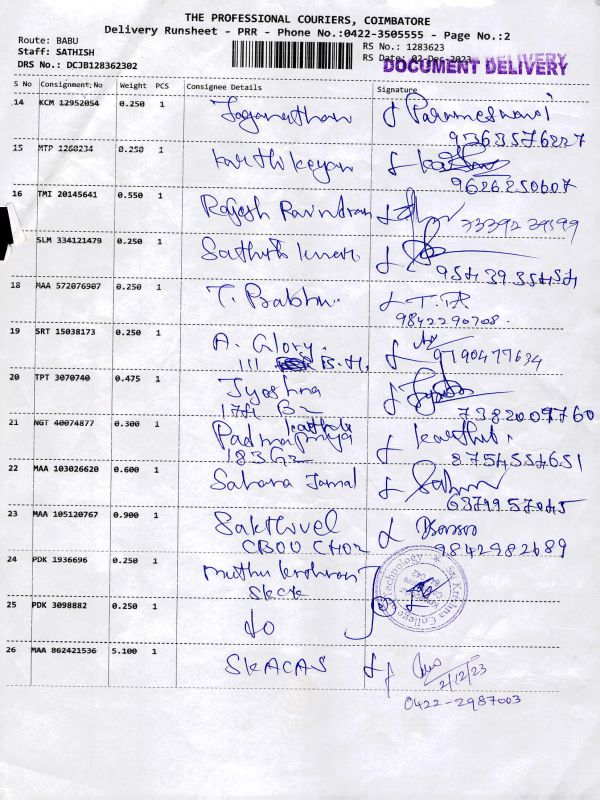 THE PROFESSIONAL COURIERS, COIMBATORE
Delivery Runsheet - PRR - Phone No.:0422-3505555 - Page No.:2
Route: BABU
Staff: SATHISH
DRS No.: DCJB128362302
RS No.: 1283623
RS Date: 02-Dec-2023
DOCUMENT DELIVERY
S No Consignment.No Weight PCS Consignee Details Signature
14 KCM 12952054 0.250 1 Jaganathan Parameswari
9363576227
15 MTP 1260234 0.250 1 Karthikeyan
9626250607
16 TMI 20145641 0.550 1 Rajesh Ravindran
SLM 334121479 0.250 1 Sathish Kumar
18 MAA 572076907 0.250 1 T. Babhu.
9842290708.
19 SRT 15038173 0.250 1 A. Glory.
111 B.H.
9190477634
20 TPT 3070740 0.475 1 Jyoshna
7382009760
21 NGT 40074877 0.300 1 Padmapriya
183G2
8754554651
22 MAA 103026620 0.600 1 Sahana Jamal
23 MAA 105120767 0.900 1 Sakthivel
9842982689
24 PDK 1936696 0.250 1 Muthu Krishnan
Skck
Sri Krishna College Technology
25 PDK 3098882 0.250 1 do
26 MAA 862421536 5.100 1 SKACAS
2/12/23
0422-2987003